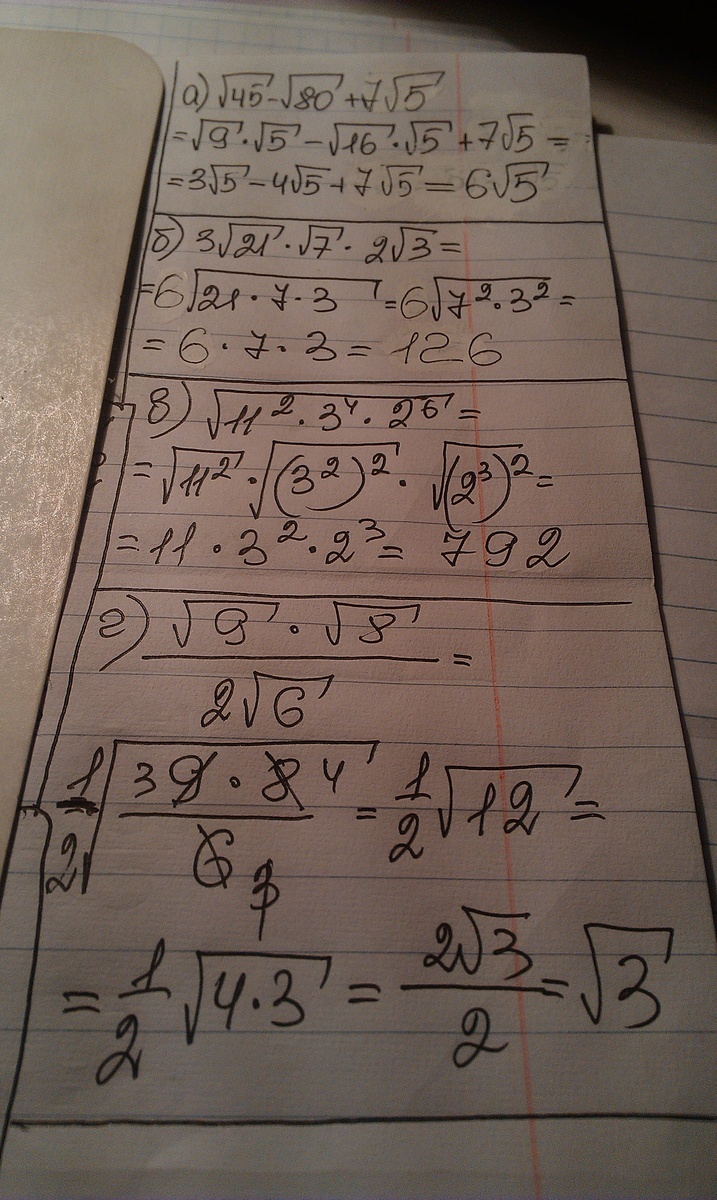 а) √45 - √80 + 7√5
= √9 · √5 - √16 · √5 + 7√5 =
= 3√5 - 4√5 + 7√5 = 6√5
б) 3√21 · √7 · 2√3 =
= 6√(21 · 7 · 3) = 6√(7² · 3²) =
= 6 · 7 · 3 = 126
в) √(11² · 3⁴ · 2⁶) =
= √11² · √(3²)² · √(2³)² =
= 11 · 3² · 2³ = 792
г) (√9 · √8) / (2√6) =
= 1/2 √((3 9 · 8 4) / (6 3)) = 1/2 √12 =
= 1/2 √(4 · 3) = 2√3 / 2 = √3